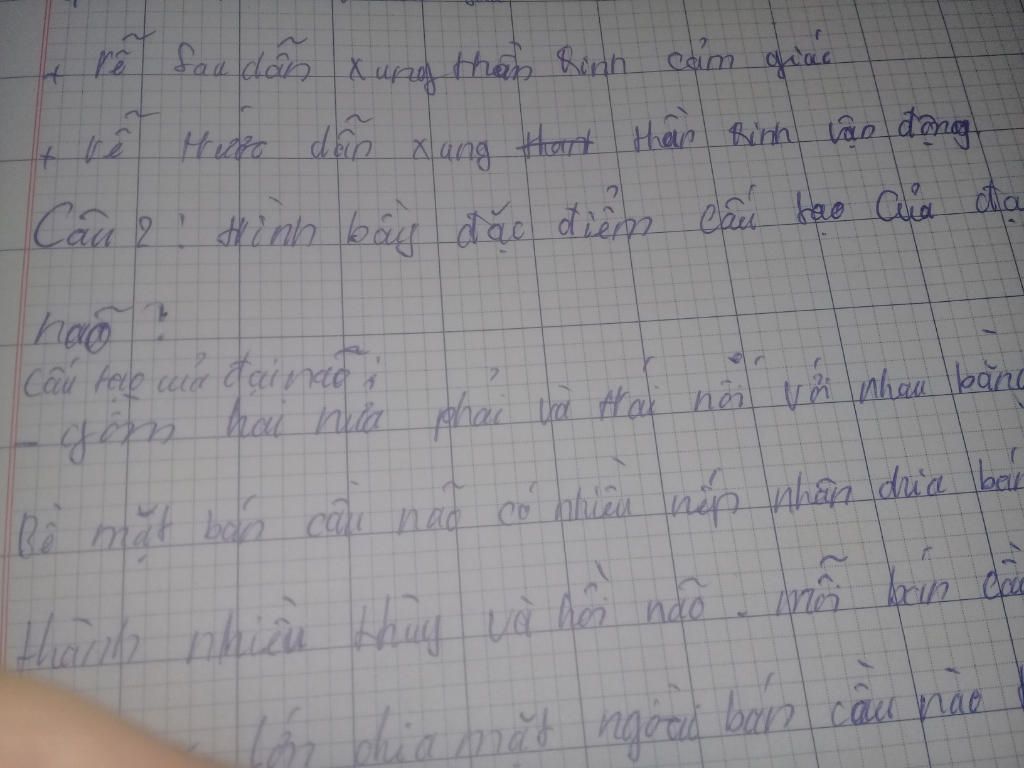 + rễ sau dẫn xung thần sinh cảm giác
+ rễ trước dẫn xung thần sinh vận động
Câu 2: trình bầy đặc điểm cấu tạo của đạ
não?
cấu tạo của đại não:
- gồm hai nửa phải và trái nối với nhau bằng
Bề mặt bán cầu não có nhiều nếp nhăn chia bán
thành nhiều thùy và hồi não - mỗi bán cầu
lớn chia mặt ngoài bán cầu não